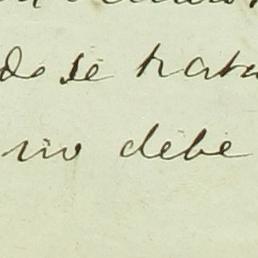 do se trata
no debe